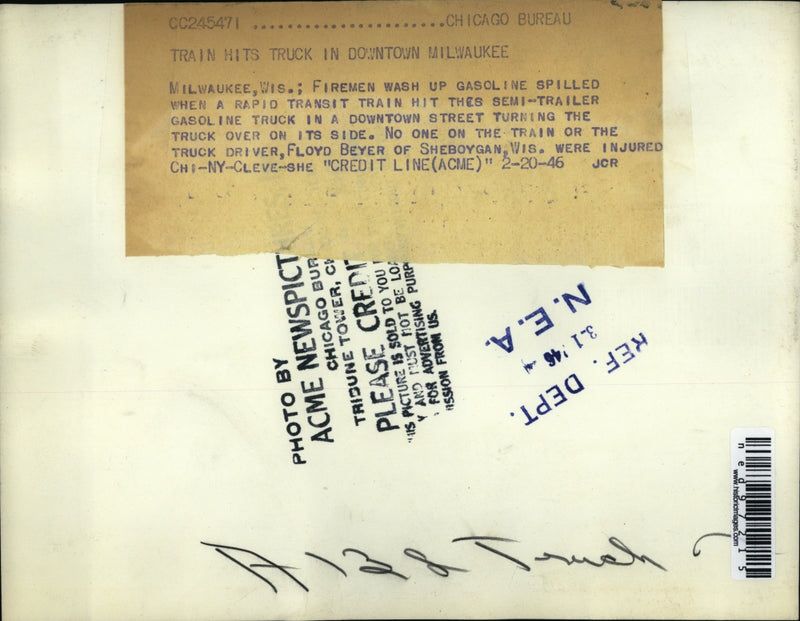 CC245471 .......................CHICAGO BUREAU
TRAIN HITS TRUCK IN DOWNTOWN MILWAUKEE
MILWAUKEE,WIS.; FIREMEN WASH UP GASOLINE SPILLED
WHEN A RAPID TRANSIT TRAIN HIT THES SEMI-TRAILER
GASOLINE TRUCK IN A DOWNTOWN STREET TURNING THE
TRUCK OVER ON ITS SIDE. NO ONE ON THE TRAIN OR THE
TRUCK DRIVER,FLOYD BEYER OF SHEBOYGAN,WIS. WERE INJURED
CHI-NY-CLEVE-SHE "CREDIT LINE(ACME)" 2-20-46 JCR
PHOTO BY
ACME NEWSPICT
CHICAGO BUR
TRIBUNE TOWER, CH
PLEASE CREDIT
HIS PICTURE IS SOLD TO YOU
Y AND MUST NOT BE LOA
FOR ADVERTISING PURP
ISSION FROM US.
N.E.A.
REF. DEPT.
A 132 Truck
ned97215
www.historicimages.com